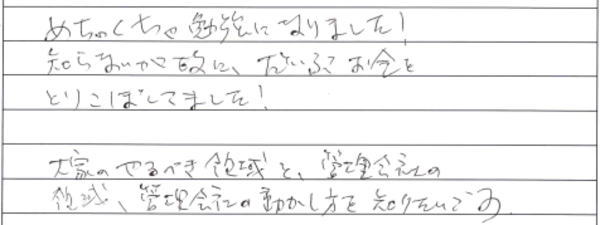 めちゃくちゃ勉強になりました!
知らないが故に、だいぶお金を
とりこぼしてました!
大家のやるべき領域と、管理会社の
領域、管理会社の動かし方を知りたいです